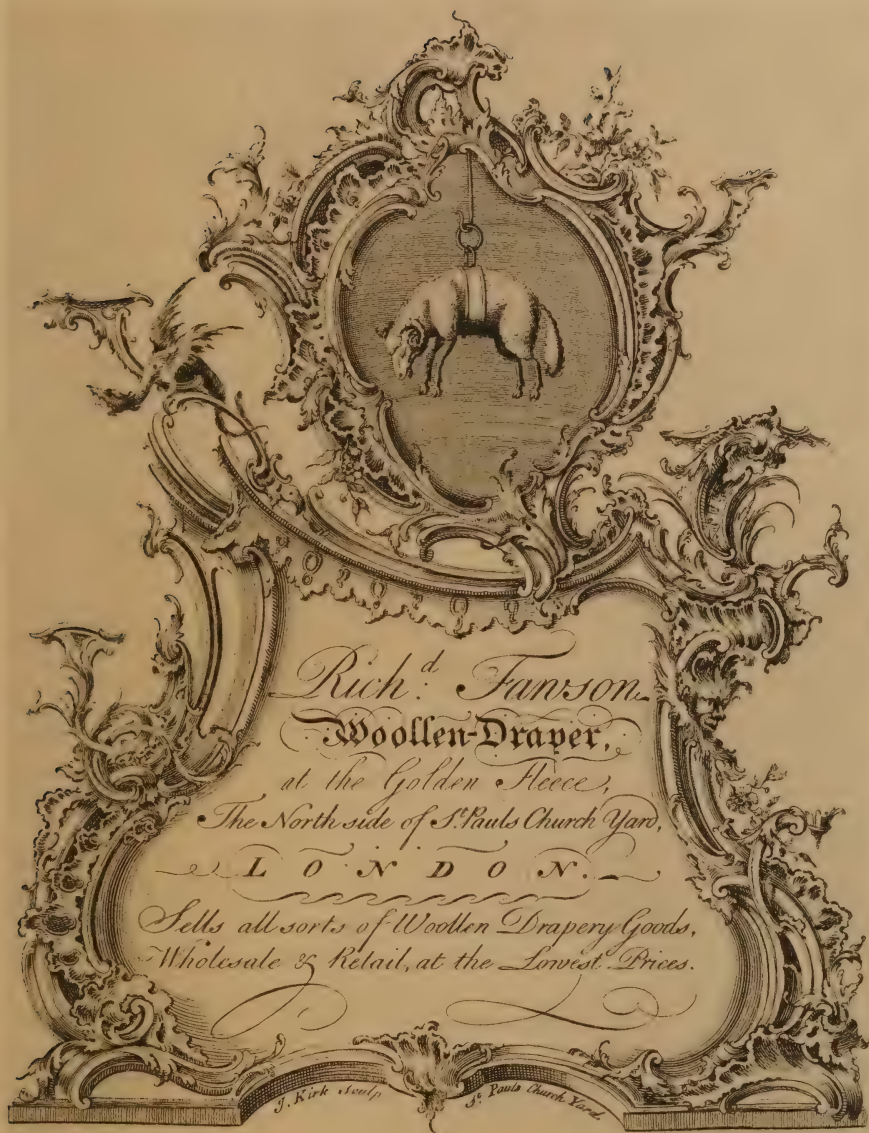 Rich.d Fawson
Woollen-Draper,
at the Golden Fleece,
The North side of St. Pauls Church Yard,
LONDON.
Sells all sorts of Woollen Drapery Goods,
Wholesale & Retail, at the Lowest Prices.
J. Kirk sculp St. Pauls Church Yard.